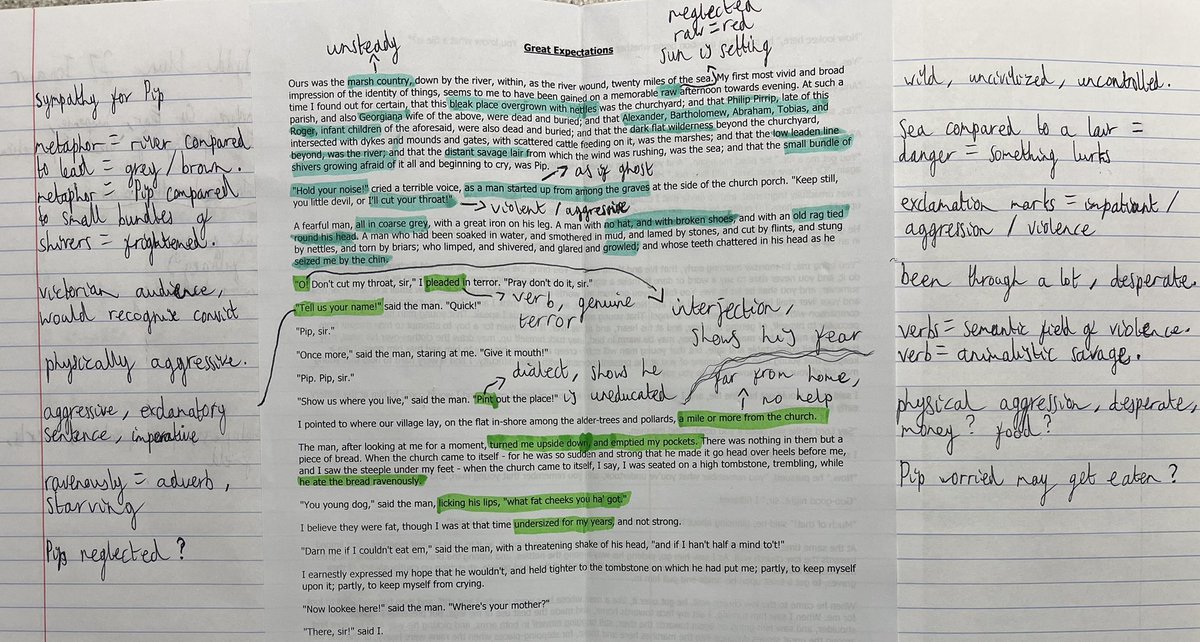 Great Expectations
neglected
raw = red
sun is setting
unsteady
Ours was the marsh country, down by the river, within, as the river wound, twenty miles of the sea. My first most vivid and broad
impression of the identity of things, seems to me to have been gained on a memorable raw afternoon towards evening. At such a
time I found out for certain, that this bleak place overgrown with nettles was the churchyard; and that Philip Pirrip, late of this
parish, and also Georgiana wife of the above, were dead and buried; and that Alexander, Bartholomew, Abraham, Tobias, and
Roger, infant children of the aforesaid, were also dead and buried; and that the dark flat wilderness beyond the churchyard,
intersected with dykes and mounds and gates, with scattered cattle feeding on it, was the marshes; and that the low leaden line
beyond, was the river; and that the distant savage lair from which the wind was rushing, was the sea; and that the small bundle of
shivers growing afraid of it all and beginning to cry, was Pip.
as if ghost
"Hold your noise!" cried a terrible voice, as a man started up from among the graves at the side of the church porch. "Keep still,
you little devil, or I'll cut your throat!"
violent / aggressive
A fearful man, all in coarse grey, with a great iron on his leg. A man with no hat, and with broken shoes, and with an old rag tied
round his head. A man who had been soaked in water, and smothered in mud, and lamed by stones, and cut by flints, and stung
by nettles, and torn by briars; who limped, and shivered, and glared and growled; and whose teeth chattered in his head as he
seized me by the chin.
"O! Don't cut my throat, sir," I pleaded in terror. "Pray don't do it, sir."
verb, genuine
terror
interjection,
shows his fear
"Tell us your name!" said the man. "Quick!"
"Pip, sir."
"Once more," said the man, staring at me. "Give it mouth!"
"Pip. Pip, sir."
dialect, shows he
is uneducated
"Show us where you live," said the man. "Pint out the place!"
far from home,
no help
I pointed to where our village lay, on the flat in-shore among the alder-trees and pollards, a mile or more from the church.
The man, after looking at me for a moment, turned me upside down, and emptied my pockets. There was nothing in them but a
piece of bread. When the church came to itself - for he was so sudden and strong that he made it go head over heels before me,
and I saw the steeple under my feet - when the church came to itself, I say, I was seated on a high tombstone, trembling, while
he ate the bread ravenously.
"You young dog," said the man, licking his lips, "what fat cheeks you ha' got."
I believe they were fat, though I was at that time undersized for my years, and not strong.
"Darn me if I couldn't eat em," said the man, with a threatening shake of his head, "and if I han't half a mind to't!"
I earnestly expressed my hope that he wouldn't, and held tighter to the tombstone on which he had put me; partly, to keep myself
upon it; partly, to keep myself from crying.
"Now lookee here!" said the man. "Where's your mother?"
"There, sir!" said I.
sympathy for Pip
metaphor = river compared
to lead = grey / brown.
metaphor = Pip compared
to small bundles of
shivers = frightened.
victorian audience,
would recognise convict
physically aggressive.
aggressive, exclamatory
sentence, imperative
ravenously = adverb,
starving
Pips neglected?
wild, uncivilized, uncontrolled.
Sea compared to a lair =
danger = something lurks
exclamation marks = impatiant /
aggression / violence
been through a lot, desperate.
verbs = semantic field of violence.
verb = animalistic savage.
physical aggression, desperate,
money? food?
Pip worried may get eaten?